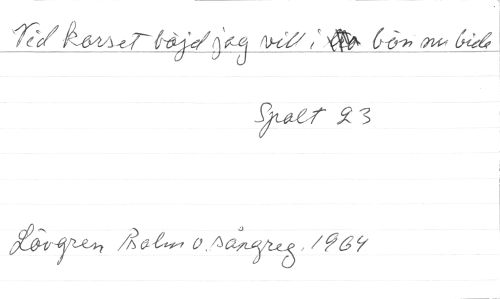 Vid korset böjd jag vill i bön nu bida
Spalt 23
Lövgren Psalm o. sångreg. 1964